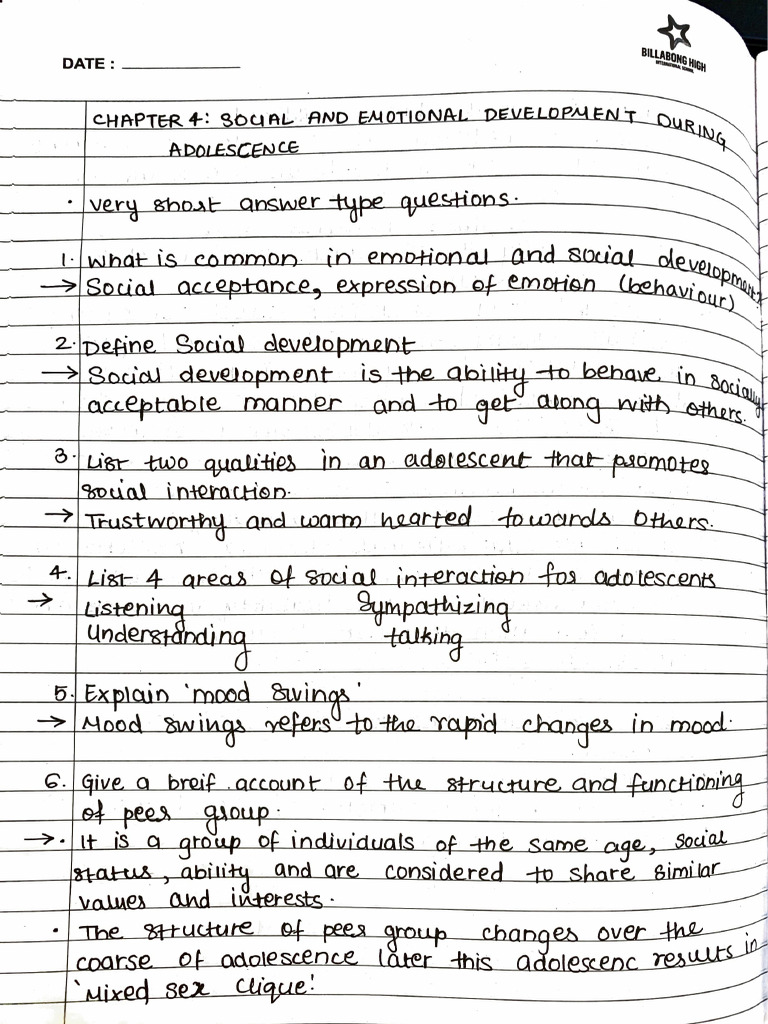 BILLABONG HIGH
INTERNATIONAL SCHOOL
DATE : ____________
CHAPTER 4: SOCIAL AND EMOTIONAL DEVELOPMENT DURING
ADOLESCENCE
• Very short answer type questions.
1. What is common in emotional and social development?
→ Social acceptance, expression of emotion (behaviour)
2. Define Social development
→ Social development is the ability to behave in socially
acceptable manner and to get along with others.
3. List two qualities in an adolescent that promotes
social interaction.
→ Trustworthy and warm hearted towards others.
4. List 4 areas of social interaction for adolescents
→ Listening Sympathizing
Understanding talking
5. Explain 'mood swings'
→ Mood swings refers to the rapid changes in mood.
6. Give a breif account of the structure and functioning
of peer group.
→ • It is a group of individuals of the same age, social
status, ability and are considered to share similar
values and interests.
• The structure of peer group changes over the
coarse of adolescence later this adolescenc results in
'Mixed sex clique!